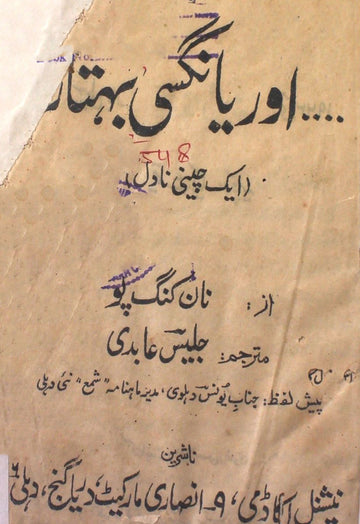 .... اور یانگسی بہتا
548
(ایک چینی ناول)
از: نان کنگ پو
مترجم: جلیس عابدی
پیش لفظ: جناب یونس دہلوی، مدیر ماہنامہ "شمع" نئی دہلی
ناشرین
نیشنل اکاڈمی، ۹۔ انصاری مارکیٹ، دریا گنج، دہلی ۶